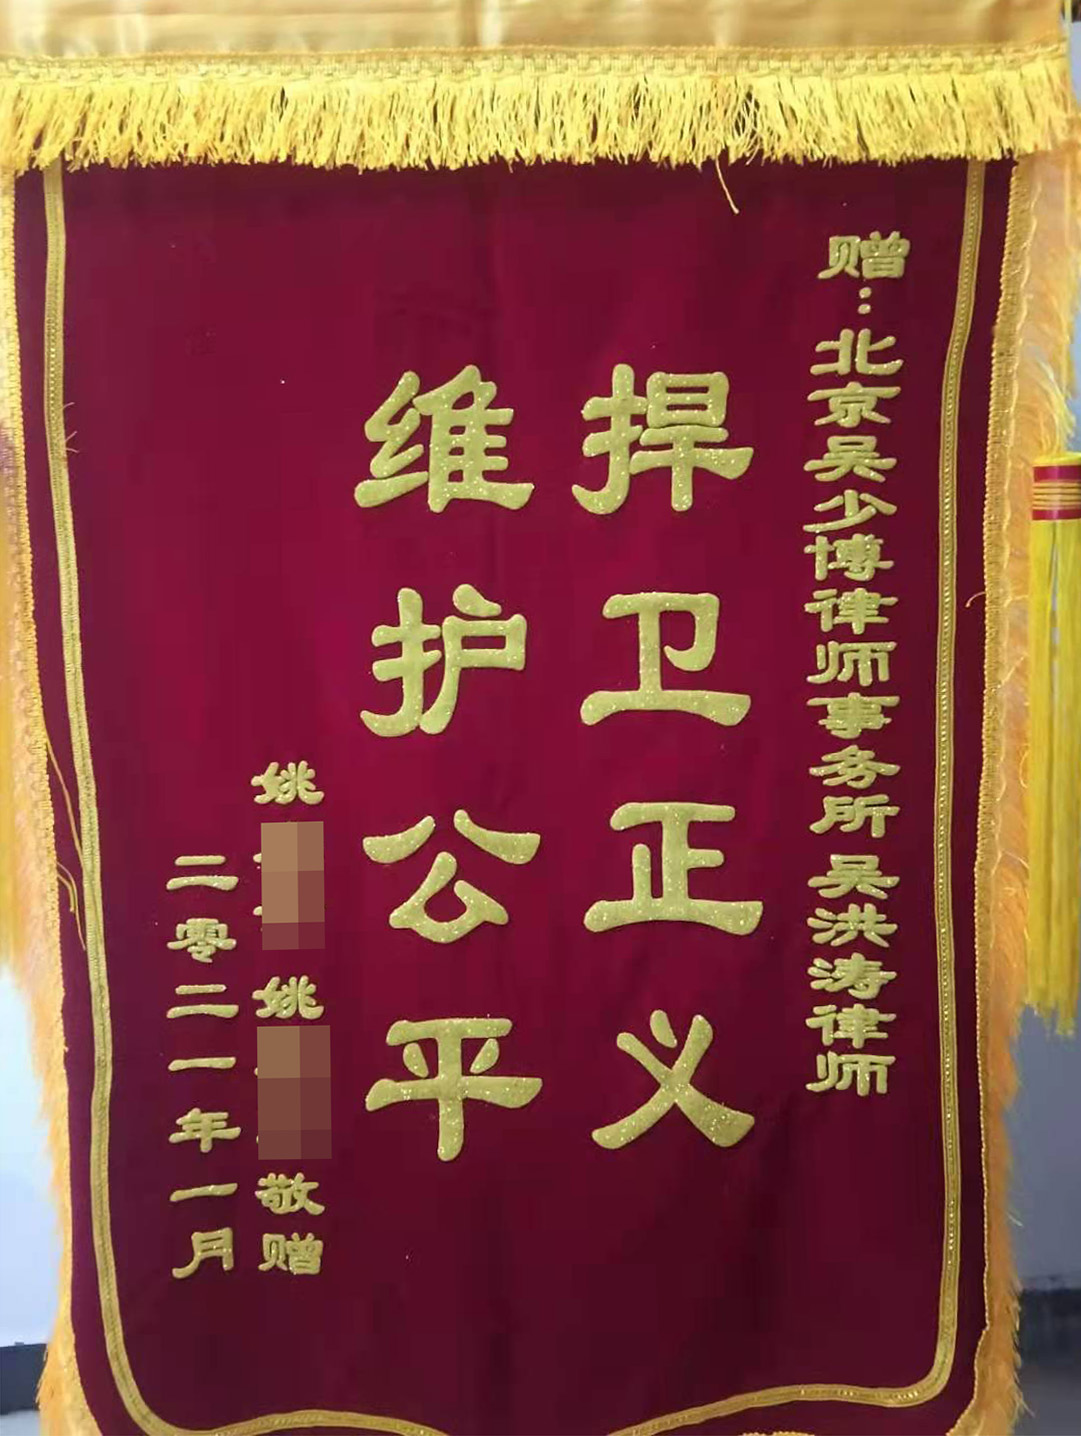 赠：北京吴少博律师事务所 吴洪涛律师
捍卫正义
维护公平
姚 姚 敬赠
二零二一年一月